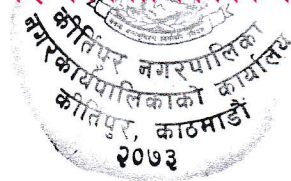 कीर्तिपुर नगरपालिका
नगरकार्यपालिकाको कार्यालय
कीर्तिपुर, काठमाडौं
२०७३